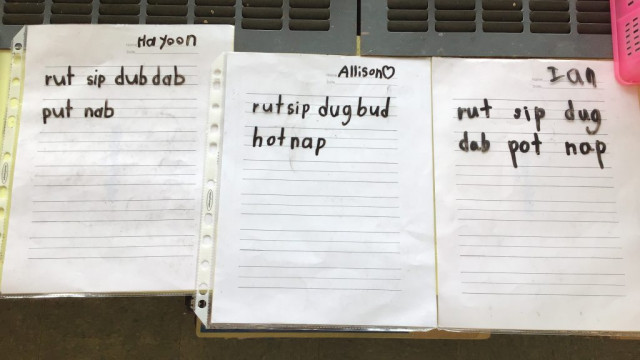 Hayoon
rut sip dub dab
put nab
Allison♡
rut sip dug bud
hot nap
Ian
rut sip dug
dab pot nap